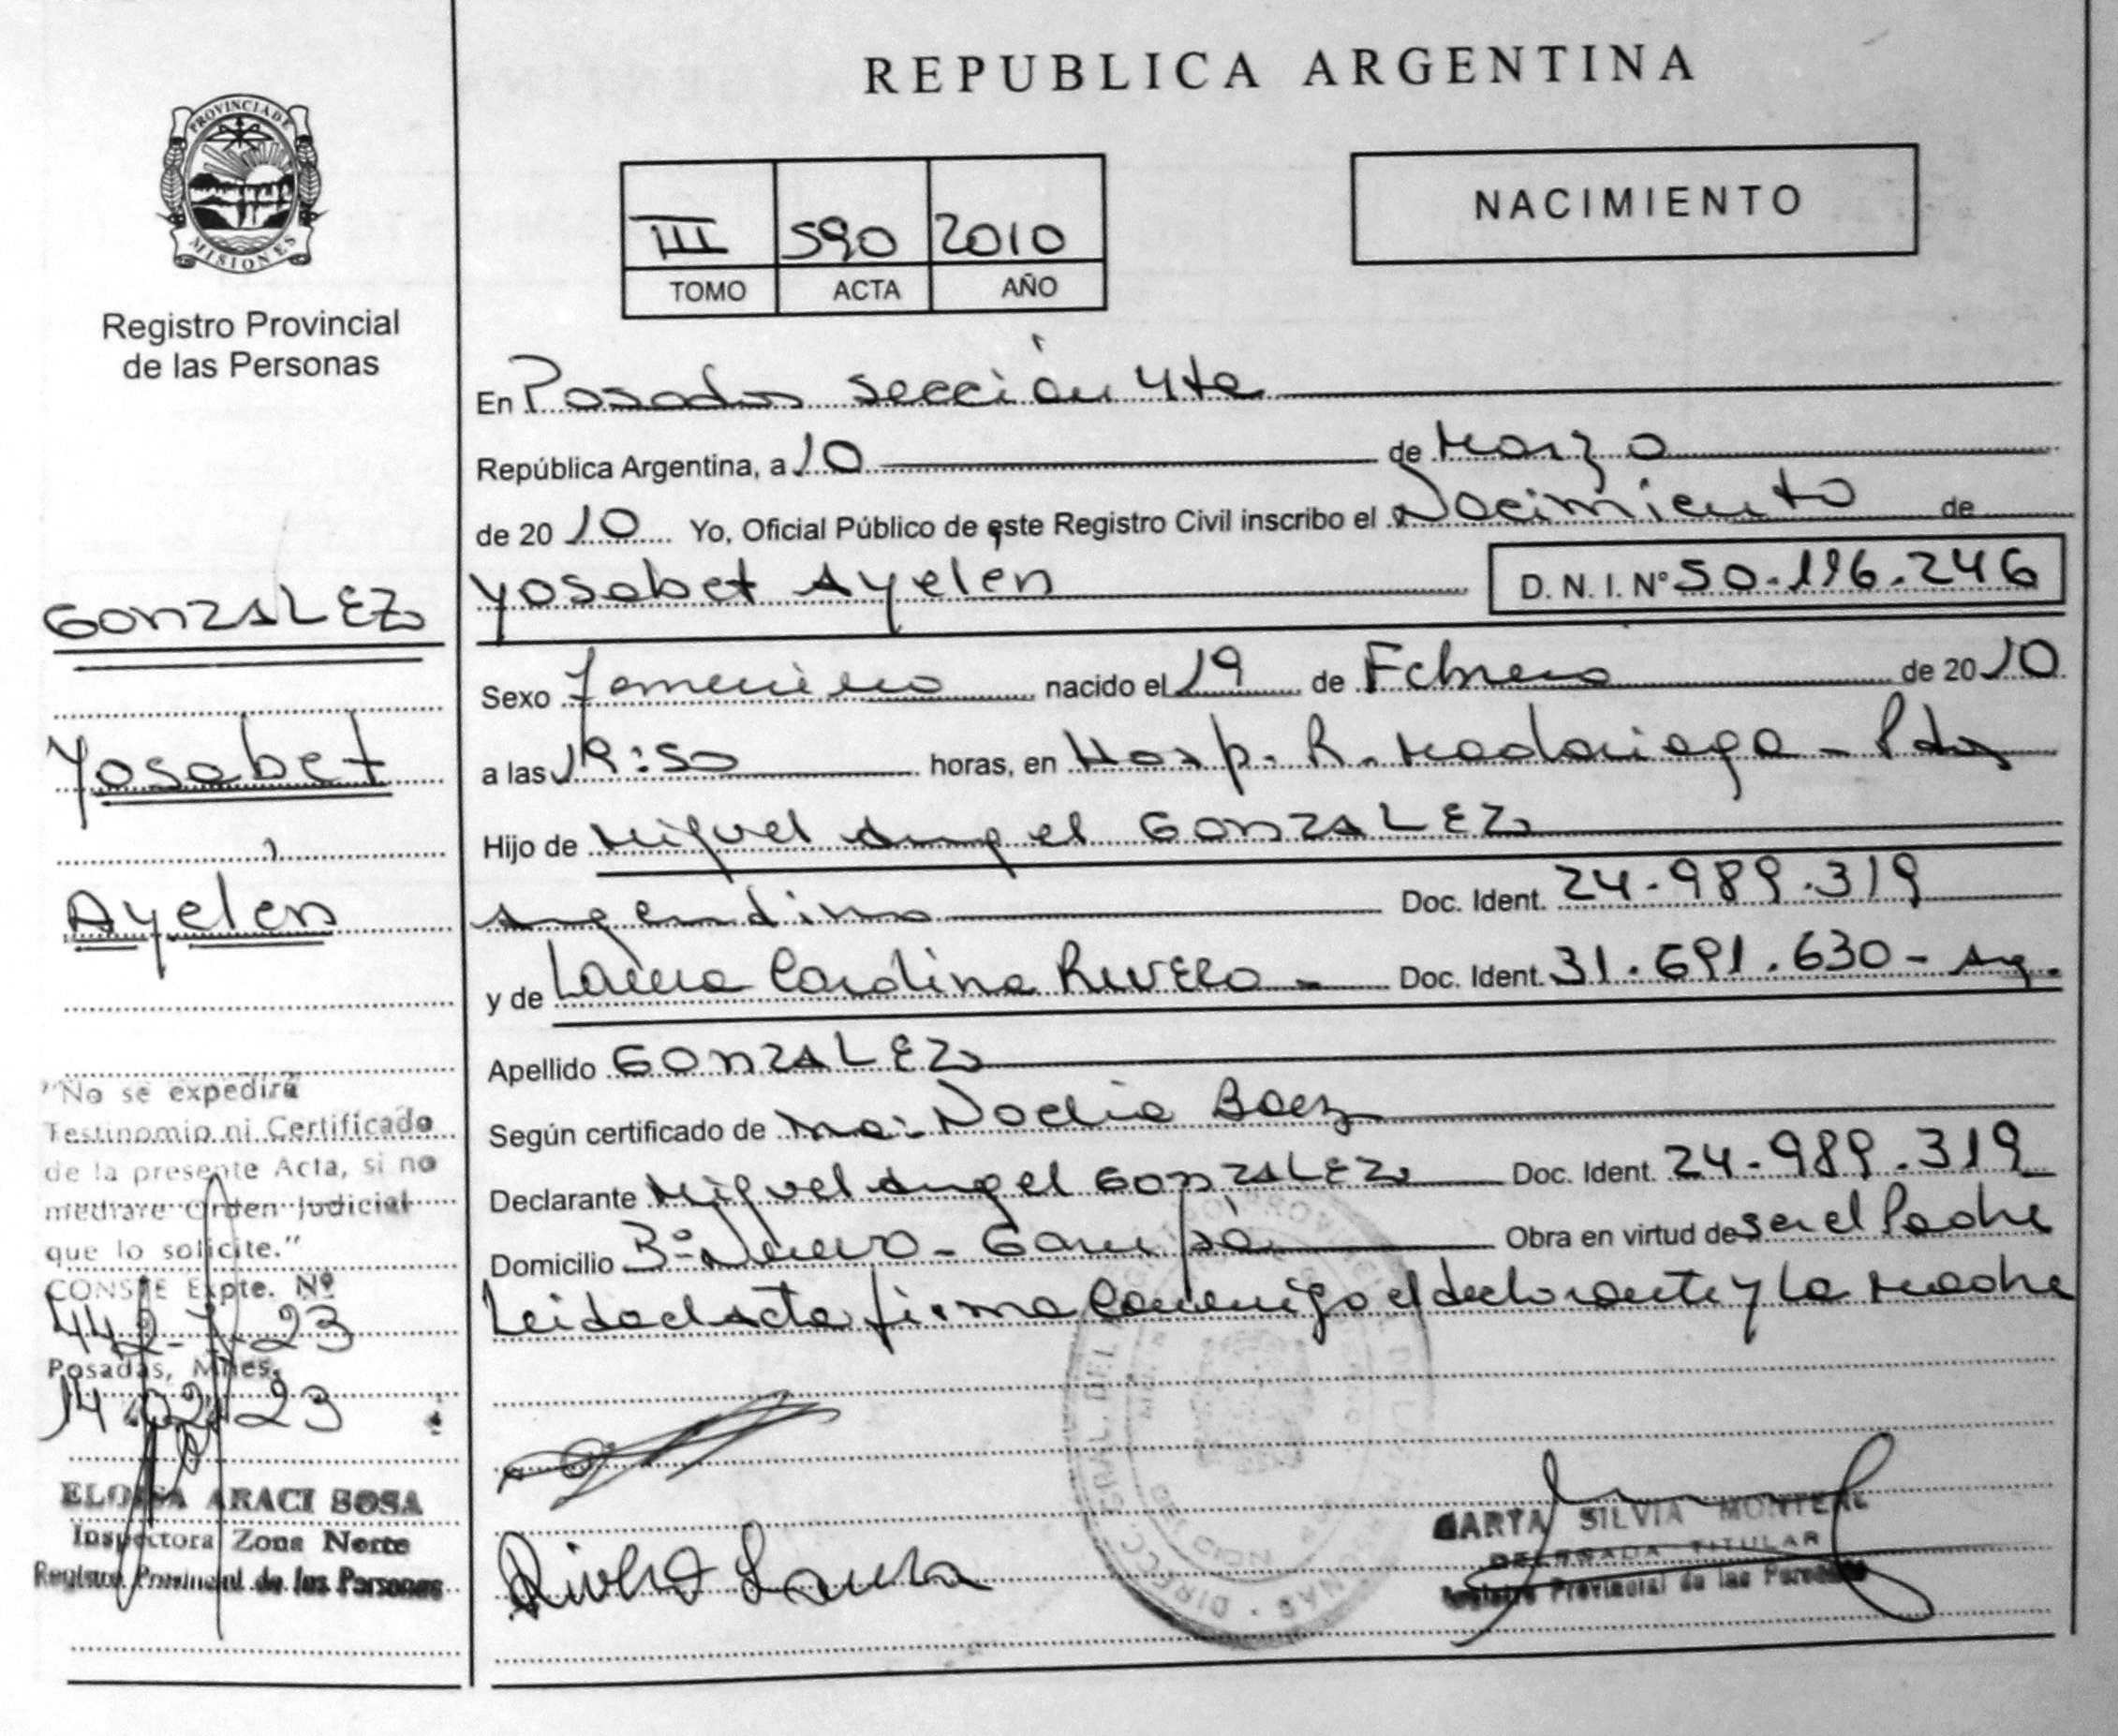 REPUBLICA ARGENTINA
PROVINCIA DE
MISIONES
Registro Provincial
de las Personas
NACIMIENTO
III 590 2010
TOMO ACTA AÑO
En Posadas sección 4ta
República Argentina, a 10 de Marzo
de 2010 Yo, Oficial Público de este Registro Civil inscribo el Nacimiento de
Yosabet Ayelén D. N. I. Nº 50.196.246
Sexo Femenino nacido el 19 de Febrero de 2010
a las 19:50 horas, en Hosp. R. Madariaga - Pdas
Hijo de Miguel Angel GONZALEZ
Argentino Doc. Ident. 24.989.319
y de Laura Carolina Rivero - Doc. Ident. 31.691.630 - Arg.
Apellido GONZALEZ
Según certificado de Ma. Noelia Baez
Declarante Miguel Angel GONZALEZ Doc. Ident. 24.989.319
Domicilio Bº Nuevo - Garupá Obra en virtud de ser el Padre
Leida el acta firma conmigo el declarante y la madre
Rivero Laura
SILVIA
DELEGADA TITULAR
Registro Provincial de las Personas
GONZALEZ
Yosabet
Ayelén
"No se expedirá
Testinomio ni Certificado
de la presente Acta, si no
mediare Orden Judicial
que lo solicite."
CONSTE Expte. Nº
442-7-23
Posadas, Mnes.
14 02 23
ELOISA ARACI SOSA
Inspectora Zona Norte
Registro Provincial de las Personas